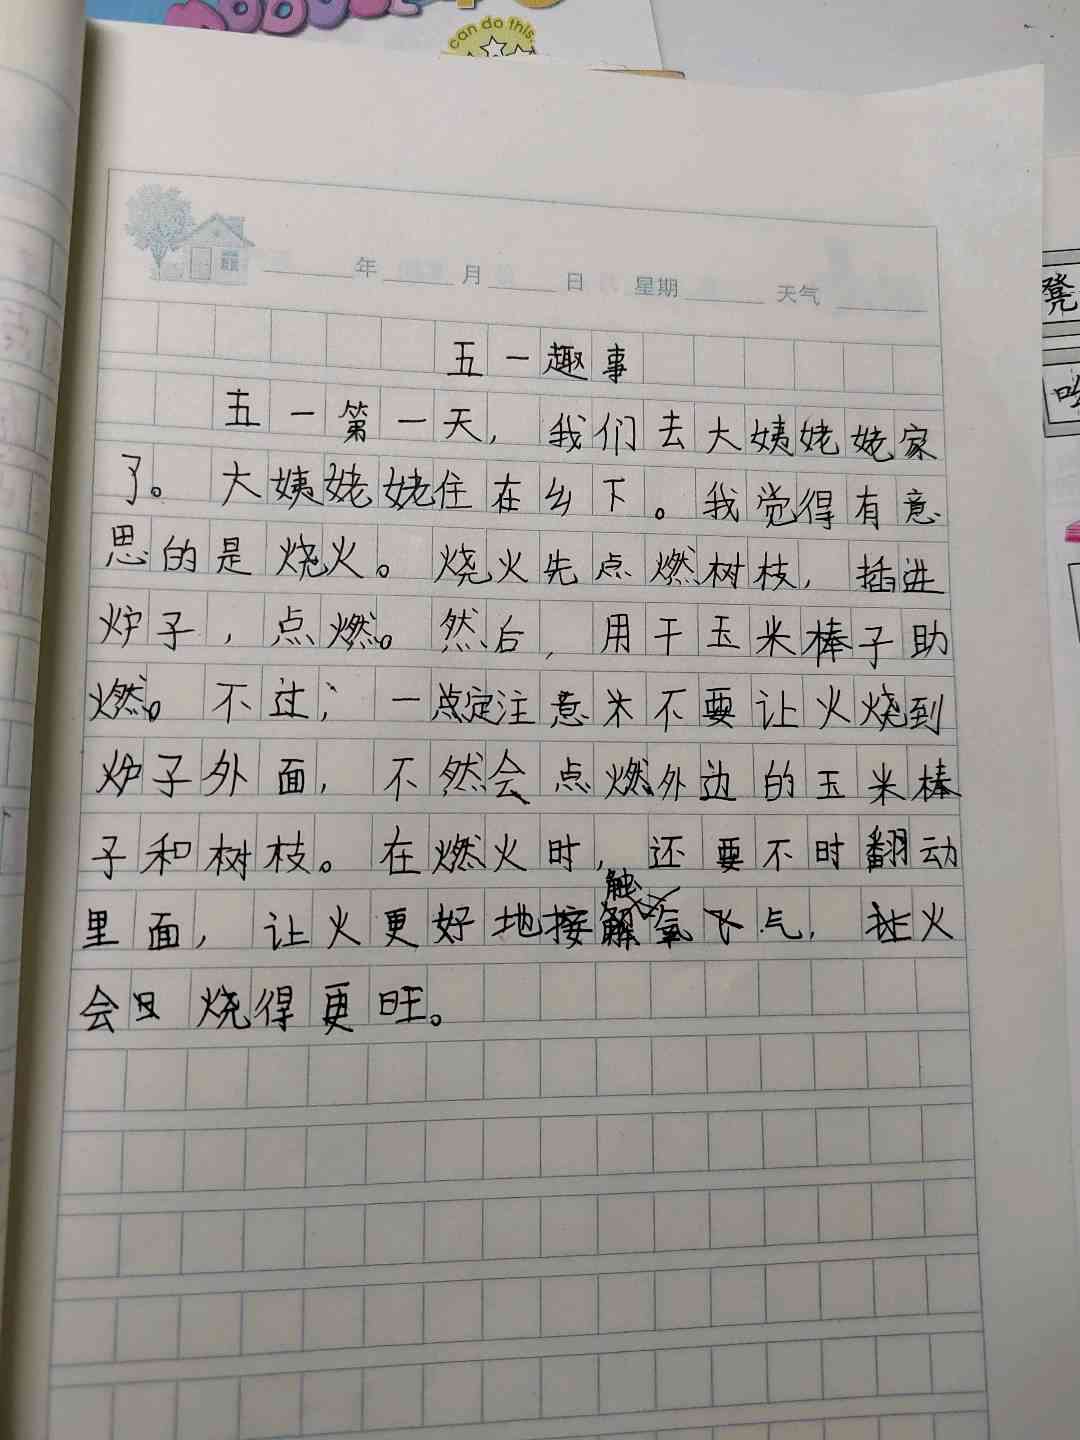 can do this.
年 月 日 星期 天气
五一趣事
五一第一天，我们去大姨姥姥家
了。大姨姥姥住在乡下。我觉得有意
思的是烧火。烧火先点燃树枝，插进
炉子，点燃。然后，用干玉米棒子助
燃。不过，一定注意不要让火烧到
炉子外面，不然会点燃外边的玉米棒
子和树枝。在燃火时，还要不时翻动
里面，让火更好地接触氧气，让火
会烧得更旺。
凳